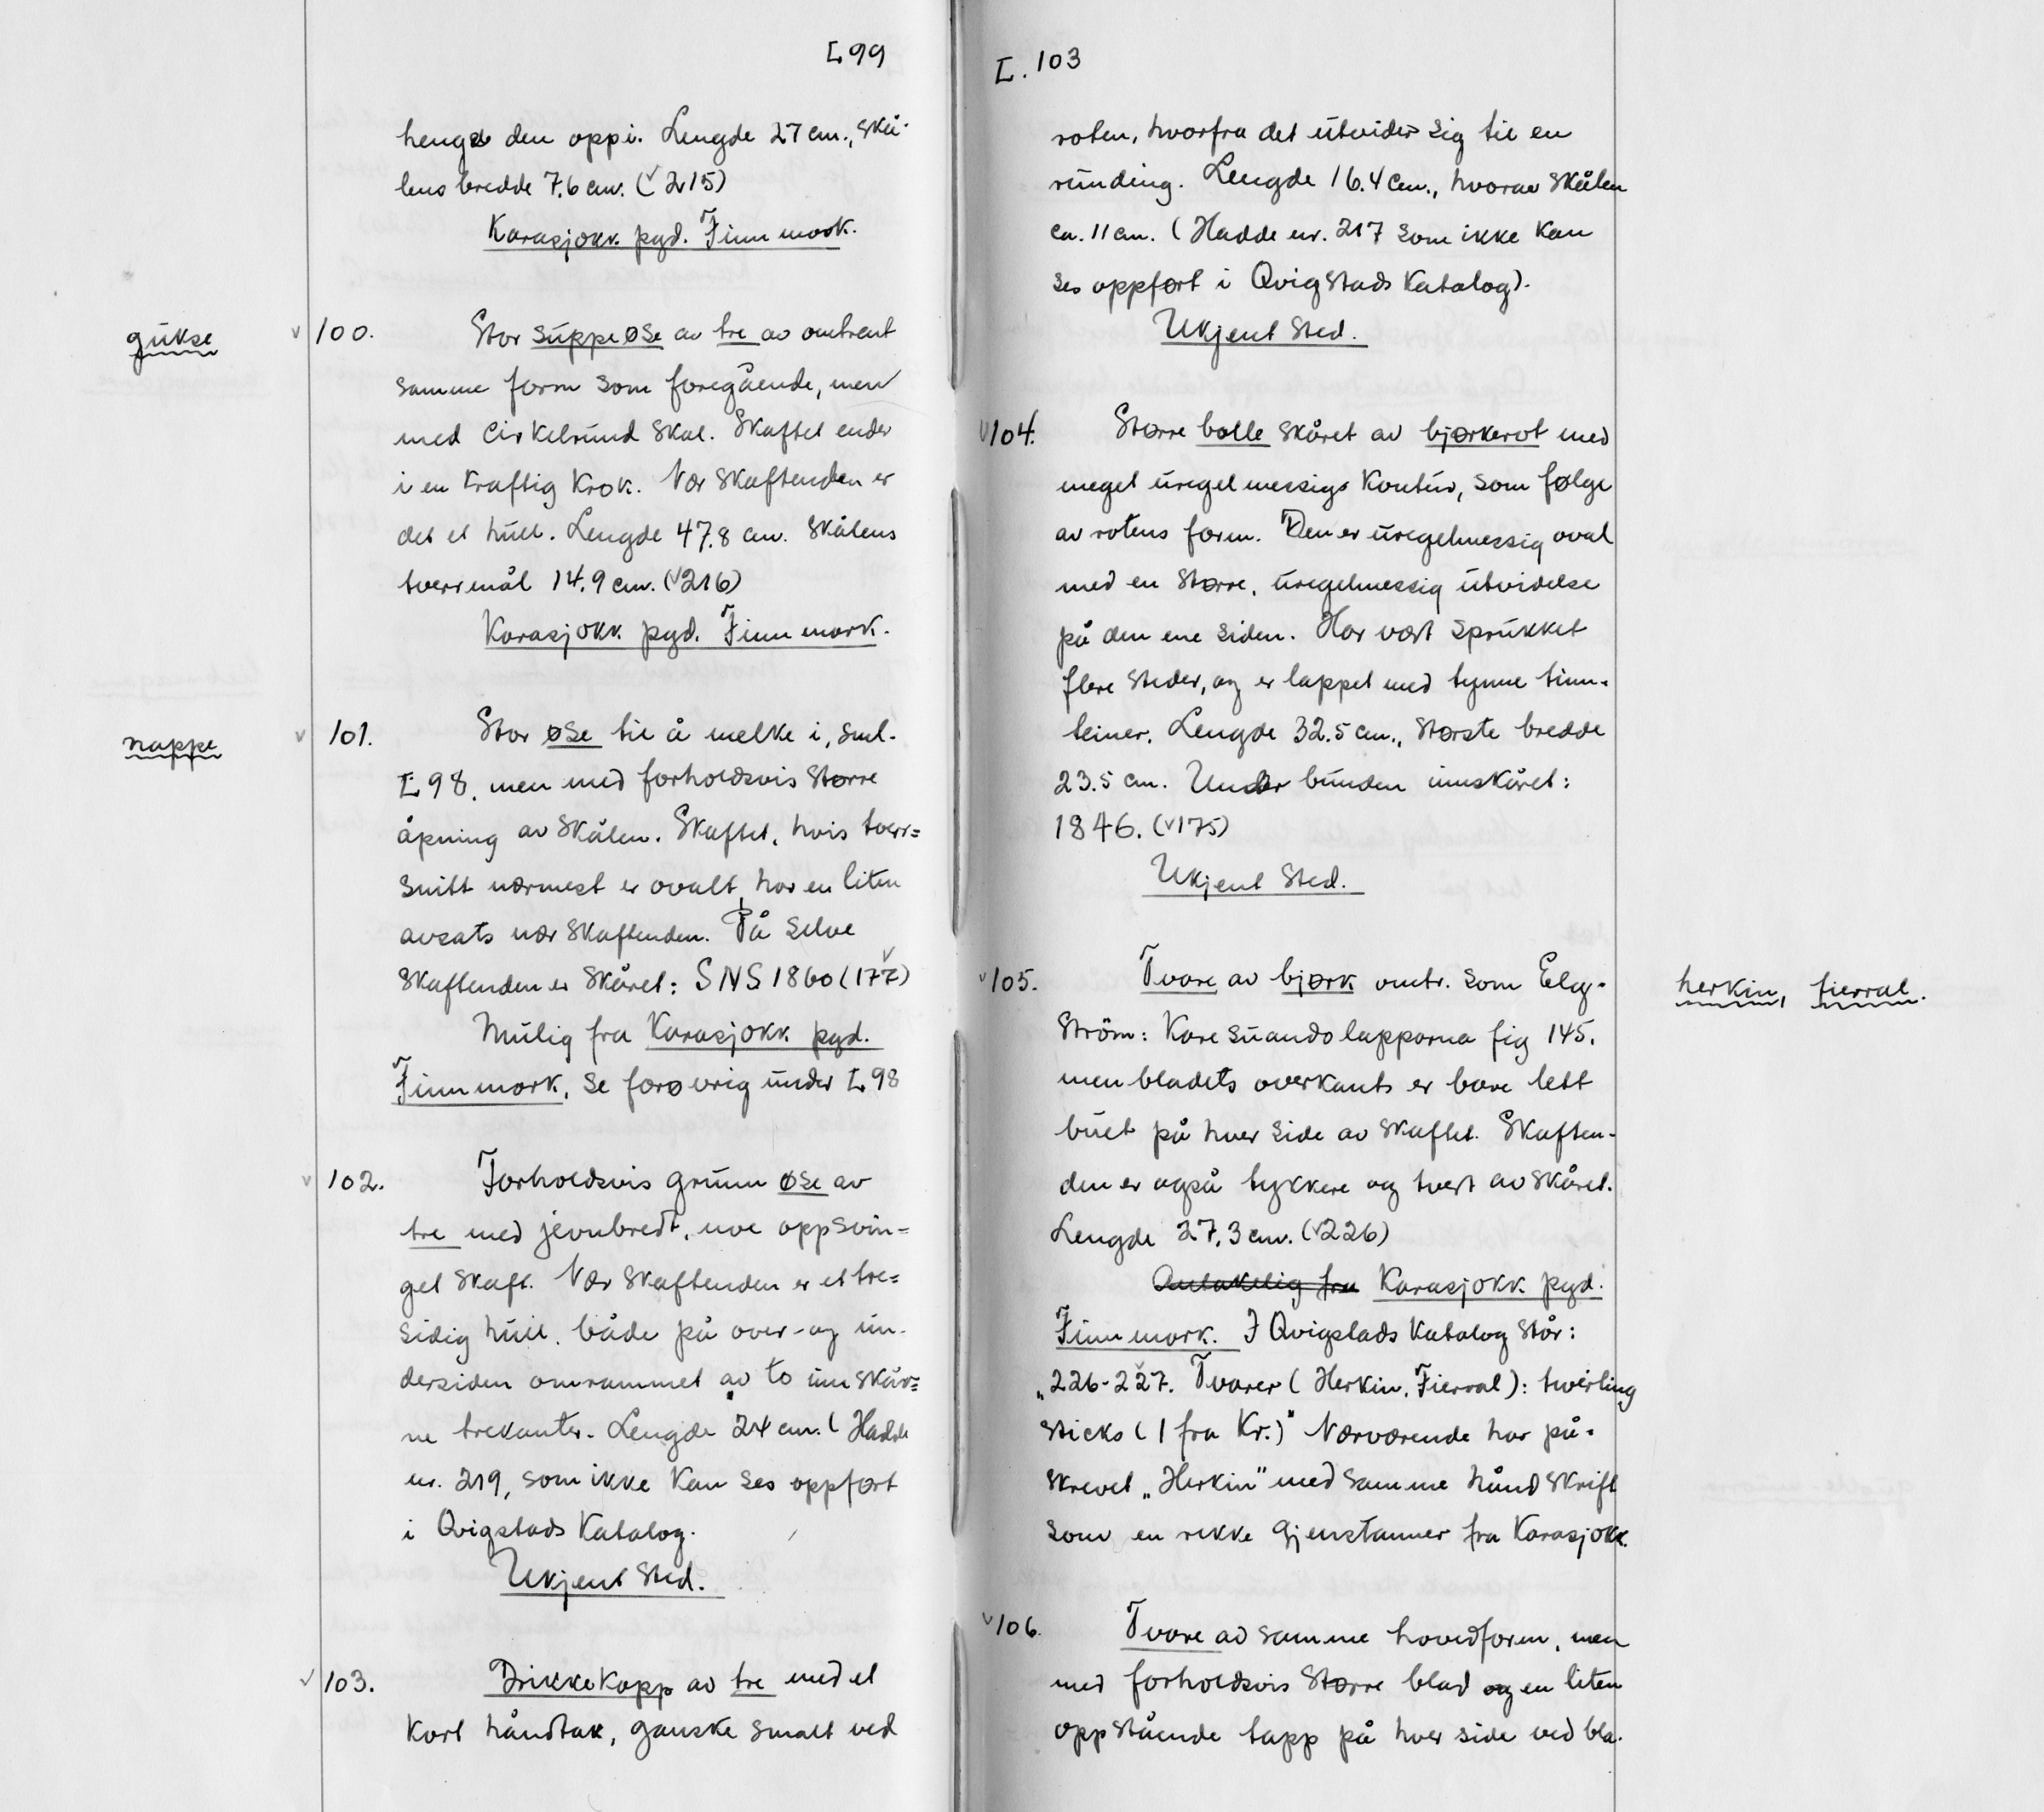 L 99
henge den opp i. Lengde 27 cm., skå-
lens bredde 7.6 cm. (v 215)
Karasjokk pgd. Finnmark.
gukse
v 100. Stor suppeøse av tre av omtrent
samme form som foregående, men
med cirkelrund skål. Skaftet ender
i en kraftig krok. Nær skaftenden er
det et hull. Lengde 47.8 cm. Skålens
tverrmål 14.9 cm. (v 216)
Karasjokk pgd. Finnmark.
nappe
v 101. Stor øse til å melke i, sml.
L 98, men med forholdsvis større
åpning av skålen. Skaftet, hvis tverr=
snitt nærmest er ovalt, har en liten
avsats nær skaftenden. På selve
skaftenden er skåret: SNS 1860 (177 v)
Mulig fra Karasjokk pgd.
Finnmark, se forøvrig under L 98
v 102. Forholdsvis grunn øse av
tre med jevnbredt, noe oppsvin=
get skaft. Nær skaftenden er et tre=
sidig hull, både på over- og un-
dersiden omrammet av to innskår=
ne trekanter. Lengde 24 cm. (Hadde
nr. 219, som ikke kan ses oppført
i Qvigstads katalog.
Ukjent sted.
v 103. Drikkekopp av tre med et
kort håndtak, ganske smalt ved
L. 103
roten, hvorfra det utvider sig til en
runding. Lengde 16.4 cm., hvorav skålen
ca. 11 cm. (Hadde nr. 217 som ikke kan
ses oppført i Qvigstads katalog).
Ukjent sted.
v 104. Større bolle skåret av bjørkerot med
meget uregelmessige kontur, som følge
av rotens form. Den er uregelmessig oval
med en større, uregelmessig utvidelse
på den ene siden. Har vært sprukket
flere steder, og er lappet med tynne tinn-
teiner. Lengde 32.5 cm., største bredde
23.5 cm. Under bunden innskåret:
1846. (v 175)
Ukjent sted.
v 105. Tvare av bjørk omtr. som Elg-
ström: Karesuandolapparna fig 145,
men bladets overkants er bare lett
buet på hver side av skaftet. Skaften-
den er også tykkere og tvert avskåret.
Lengde 27.3 cm. (v 226)
herkin, fierral.
Antakelig fra Karasjokk pgd.
Finnmark. I Qvigstads katalog står:
„226-227. Tvarer (Herkin, Fierral): twirling
sticks (1 fra Kr.)" Nærværende har på-
skrevet „Herkin" med samme håndskrift
som en rekke gjenstanner fra Karasjokk.
v 106. Tvare av samme hovedform, men
med forholdsvis større blad og en liten
oppstående tapp på hver side ved bla-